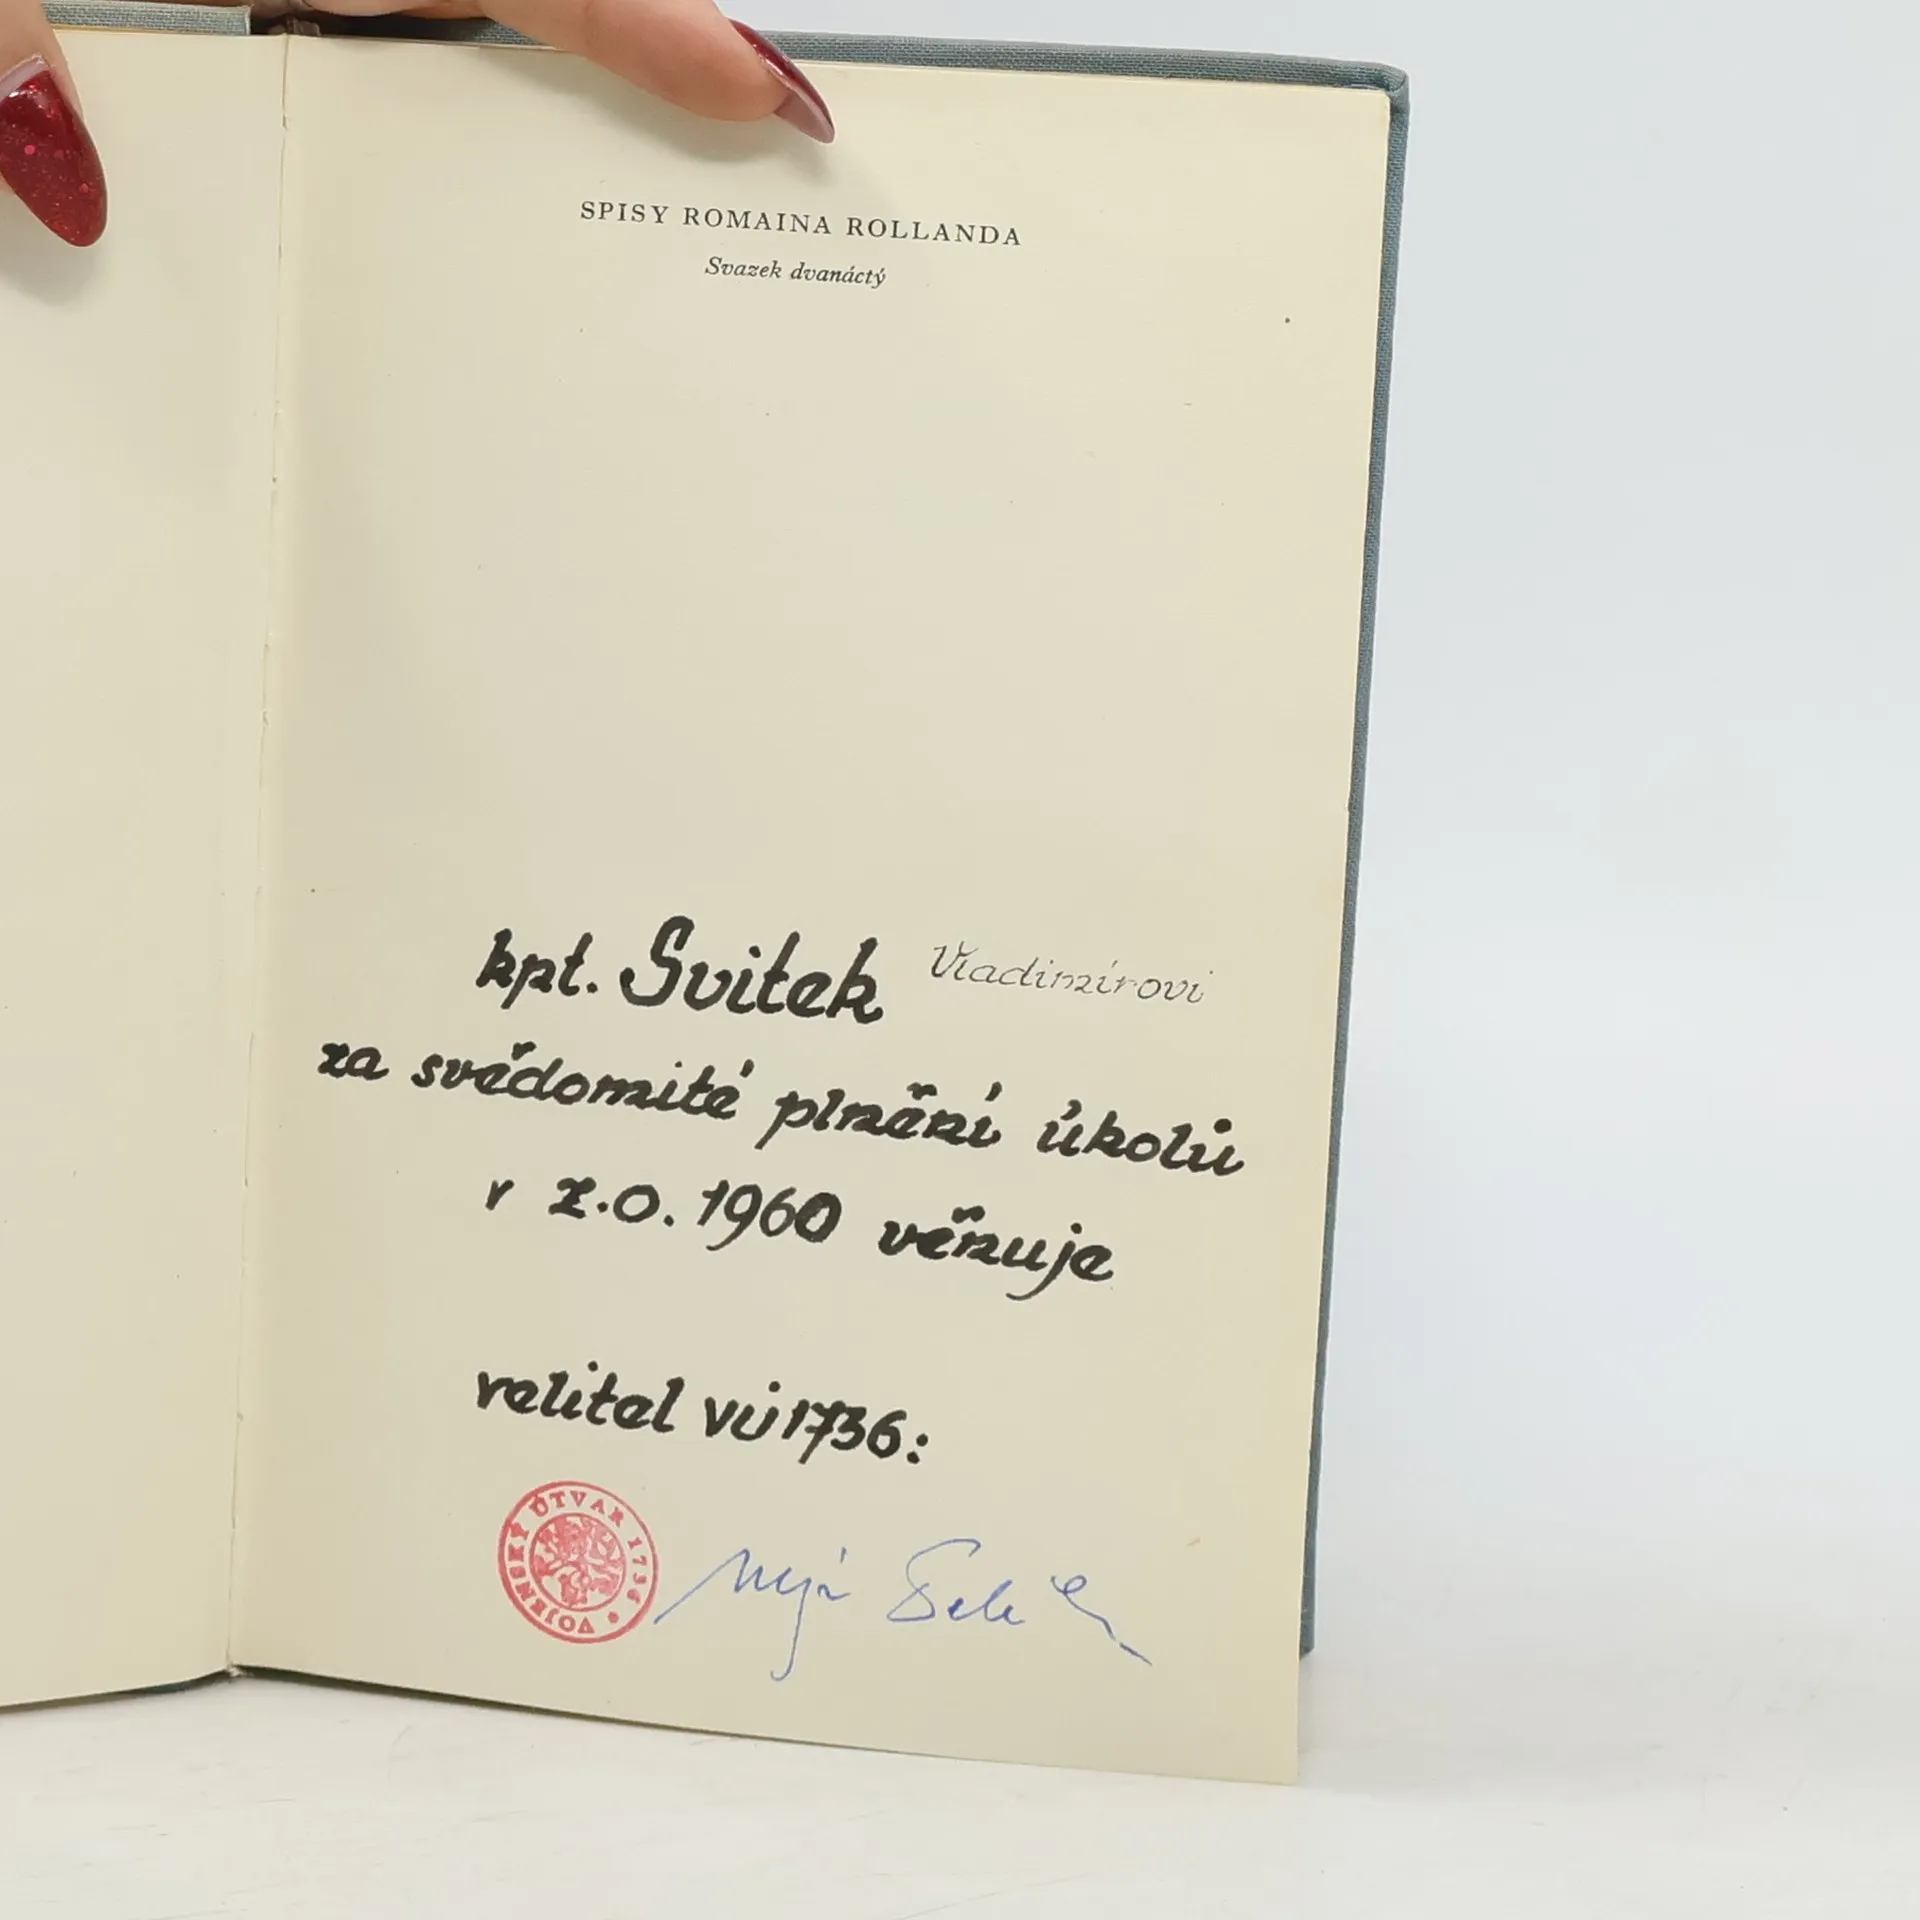 SPISY ROMAINA ROLLANDA
Svazek dvanáctý
kpt. Svitek Vladimírovi
za svědomité plnění úkolů
v z.o. 1960 věnuje
velitel VÚ 1736:
VOJENSKÝ ÚTVAR 1736